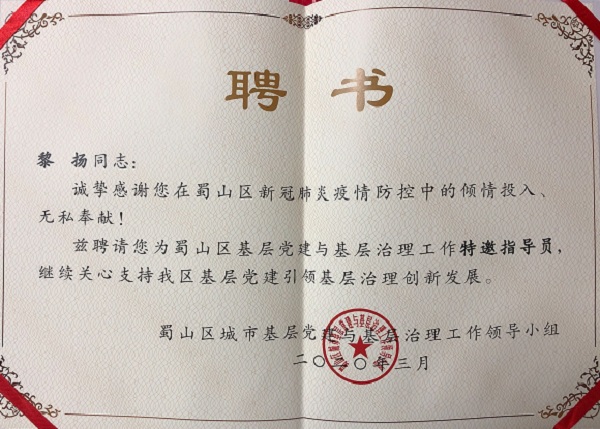 聘书
黎 扬同志：
诚挚感谢您在蜀山区新冠肺炎疫情防控中的倾情投入、
无私奉献！
兹聘请您为蜀山区基层党建与基层治理工作特邀指导员，
继续关心支持我区基层党建引领基层治理创新发展。
蜀山区城市基层党建与基层治理工作领导小组
二〇二〇年三月